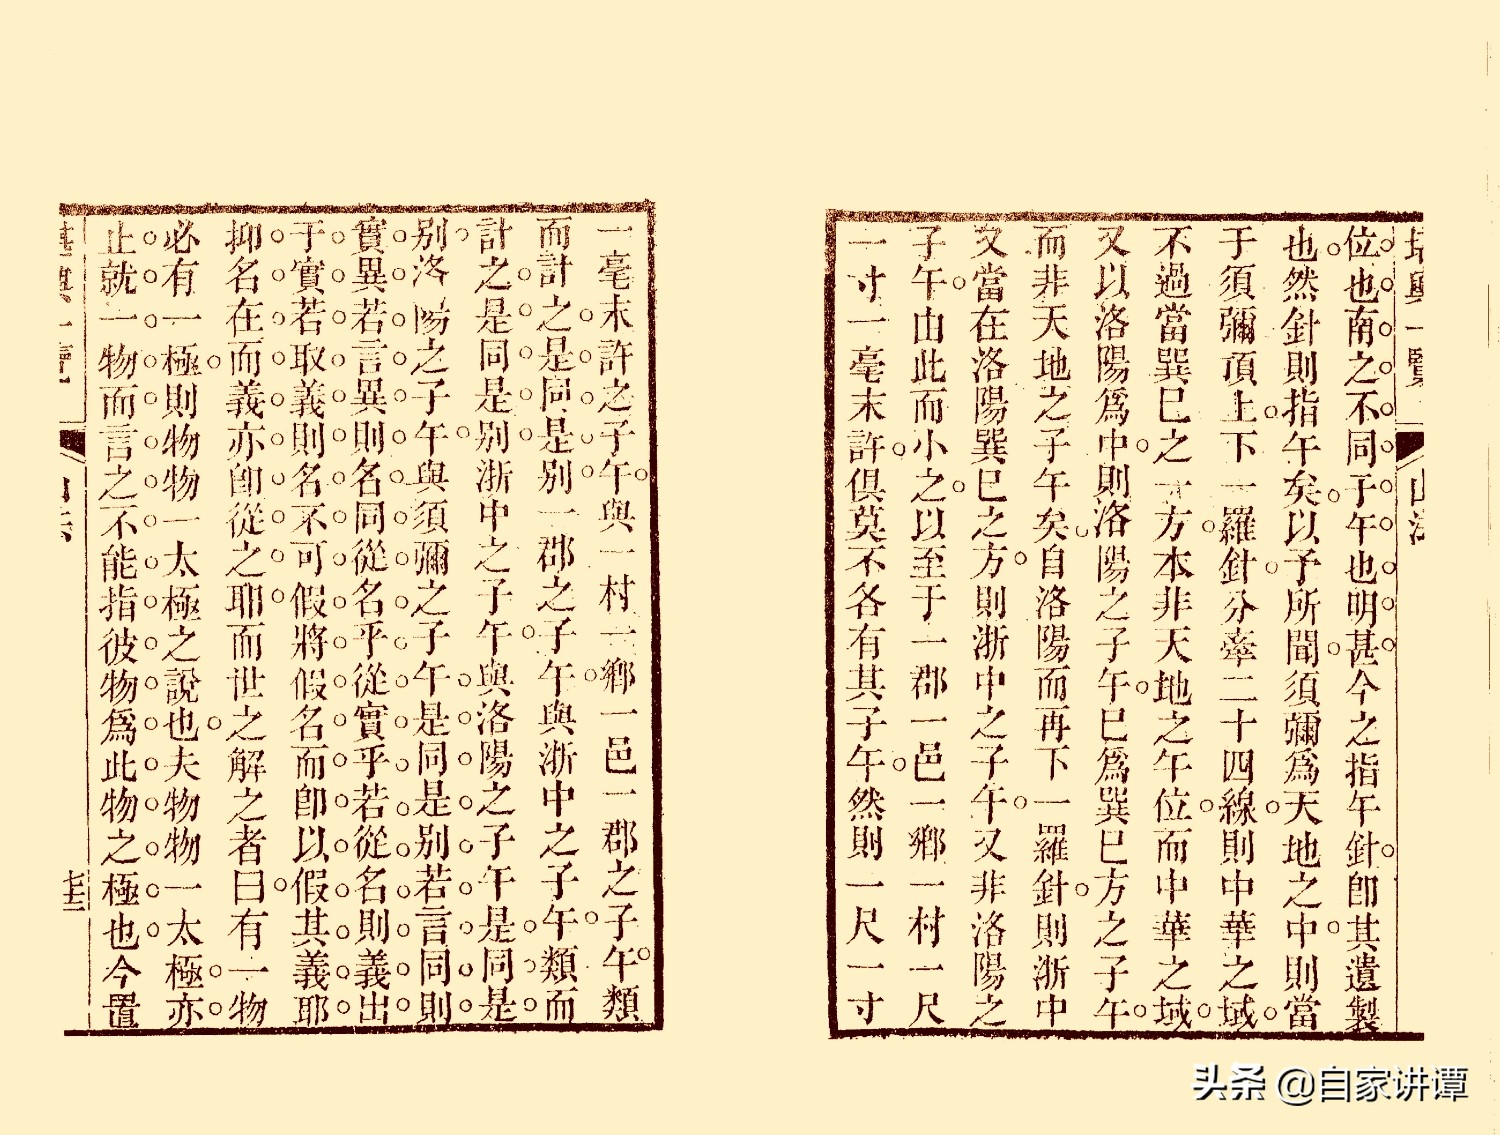 一覽
位也南之不同子午也明甚今之指午針卽其遺製
也然針則指午矣以予所聞須彌爲天地之中則當
于須彌頂上下一羅針分牽二十四線則中華之域
不過當巽巳之一方本非天地之午位而中華之域
又以洛陽爲中則洛陽之子午巳爲巽巳方之子午
而非天地之子午矣自洛陽而再下一羅針則浙中
又當在洛陽巽巳之方則浙中之子午又非洛陽之
子午由此而小之以至于一郡一邑一鄉一村一尺
一寸一毫末許俱莫不各有其子午然則一尺一寸
一毫末許之子午與一村一鄉一邑一郡之子午類
而計之是同是别一郡之子午與浙中之子午類而
計之是同是别浙中之子午與洛陽之子午是同是
别洛陽之子午與須彌之子午是同是别若言同則
實異若言異則名同從名乎從實乎若從名則義出
于實若取義則名不可假將假名而卽以假其義耶
抑名在而義亦卽從之耶而世之解之者曰有一物
必有一極則物物一太極之說也夫物物一太極亦
止就一物而言之不能指彼物爲此物之極也今置
一覽
十三
头条 @自家讲谭